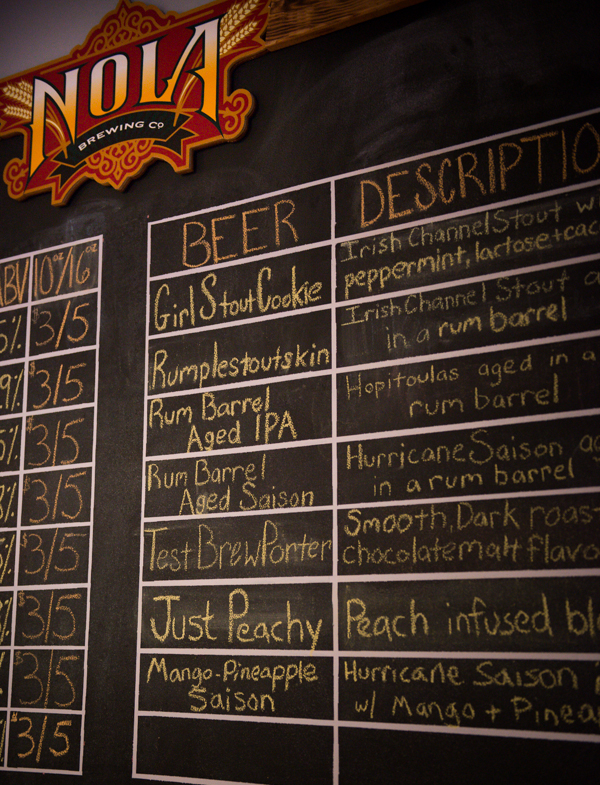 NOLA
BREWING CO
10 oz/16 oz
$3/5
$3/5
$3/5
$3/5
$3/5
$3/5
$3/5
$3/5
BEER DESCRIPTIO
GirlStoutCookie
Irish Channel Stout
peppermint, lactose+cac
Rumplestoutskin
Irish Channel Stout a
in a rum barrel
Rum Barrel
Aged IPA
Hopitoulas aged in a
rum barrel
Rum Barrel
Aged Saison
Hurricane Saison ag
in a rum barrel
Test Brew Porter
Smooth, Dark roast
chocolate malt flavo
Just Peachy
Peach infused bl
Mango-Pineapple
Saison
Hurricane Saison
w/ Mango + Pinea